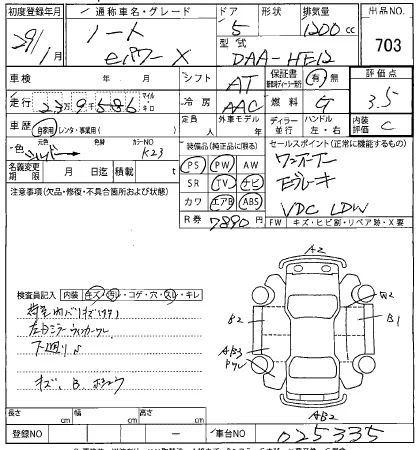 初度登録年月 通称車名・グレード ドア 形状 排気量 出品NO.
29/1月 ノート eパワー X 5 1200cc 703
型式 DAA-HE12
車検 年 月 シフト AT 保証書 有 無 評価点
走行 23万9千586 マイル キロ 冷房 AAC 燃料 G 3.5
車歴 自家用 レンタ・事業用( ) 定員 人 外車モデル 年 ディーラー 並行 ハンドル 左・右 内装評価 C
色 シルバー 元色 色替 カラーNO K23 装備品(純正品に限る) セールスポイント(正常に機能するもの)
名義変更期限 月 日迄 積載 t PS PW AW ワンオーナー
注意事項(欠品・修復・不具合箇所および状態) SR TV ナビ Eブレーキ
カワ エアB ABS VDC LDW
R券 7890円 FW キズ・ヒビ割・リペア跡・X要
A2
検査員記入 内装 キズ・汚・コゲ・穴・スレ・キレ
左ドアミラーウィンカーワレ
下廻りS
キズ、B、
B2 AB3 ワレ W2 B1
AB2
長さ cm 幅 cm 高さ cm
登録NO — 車台NO 025335